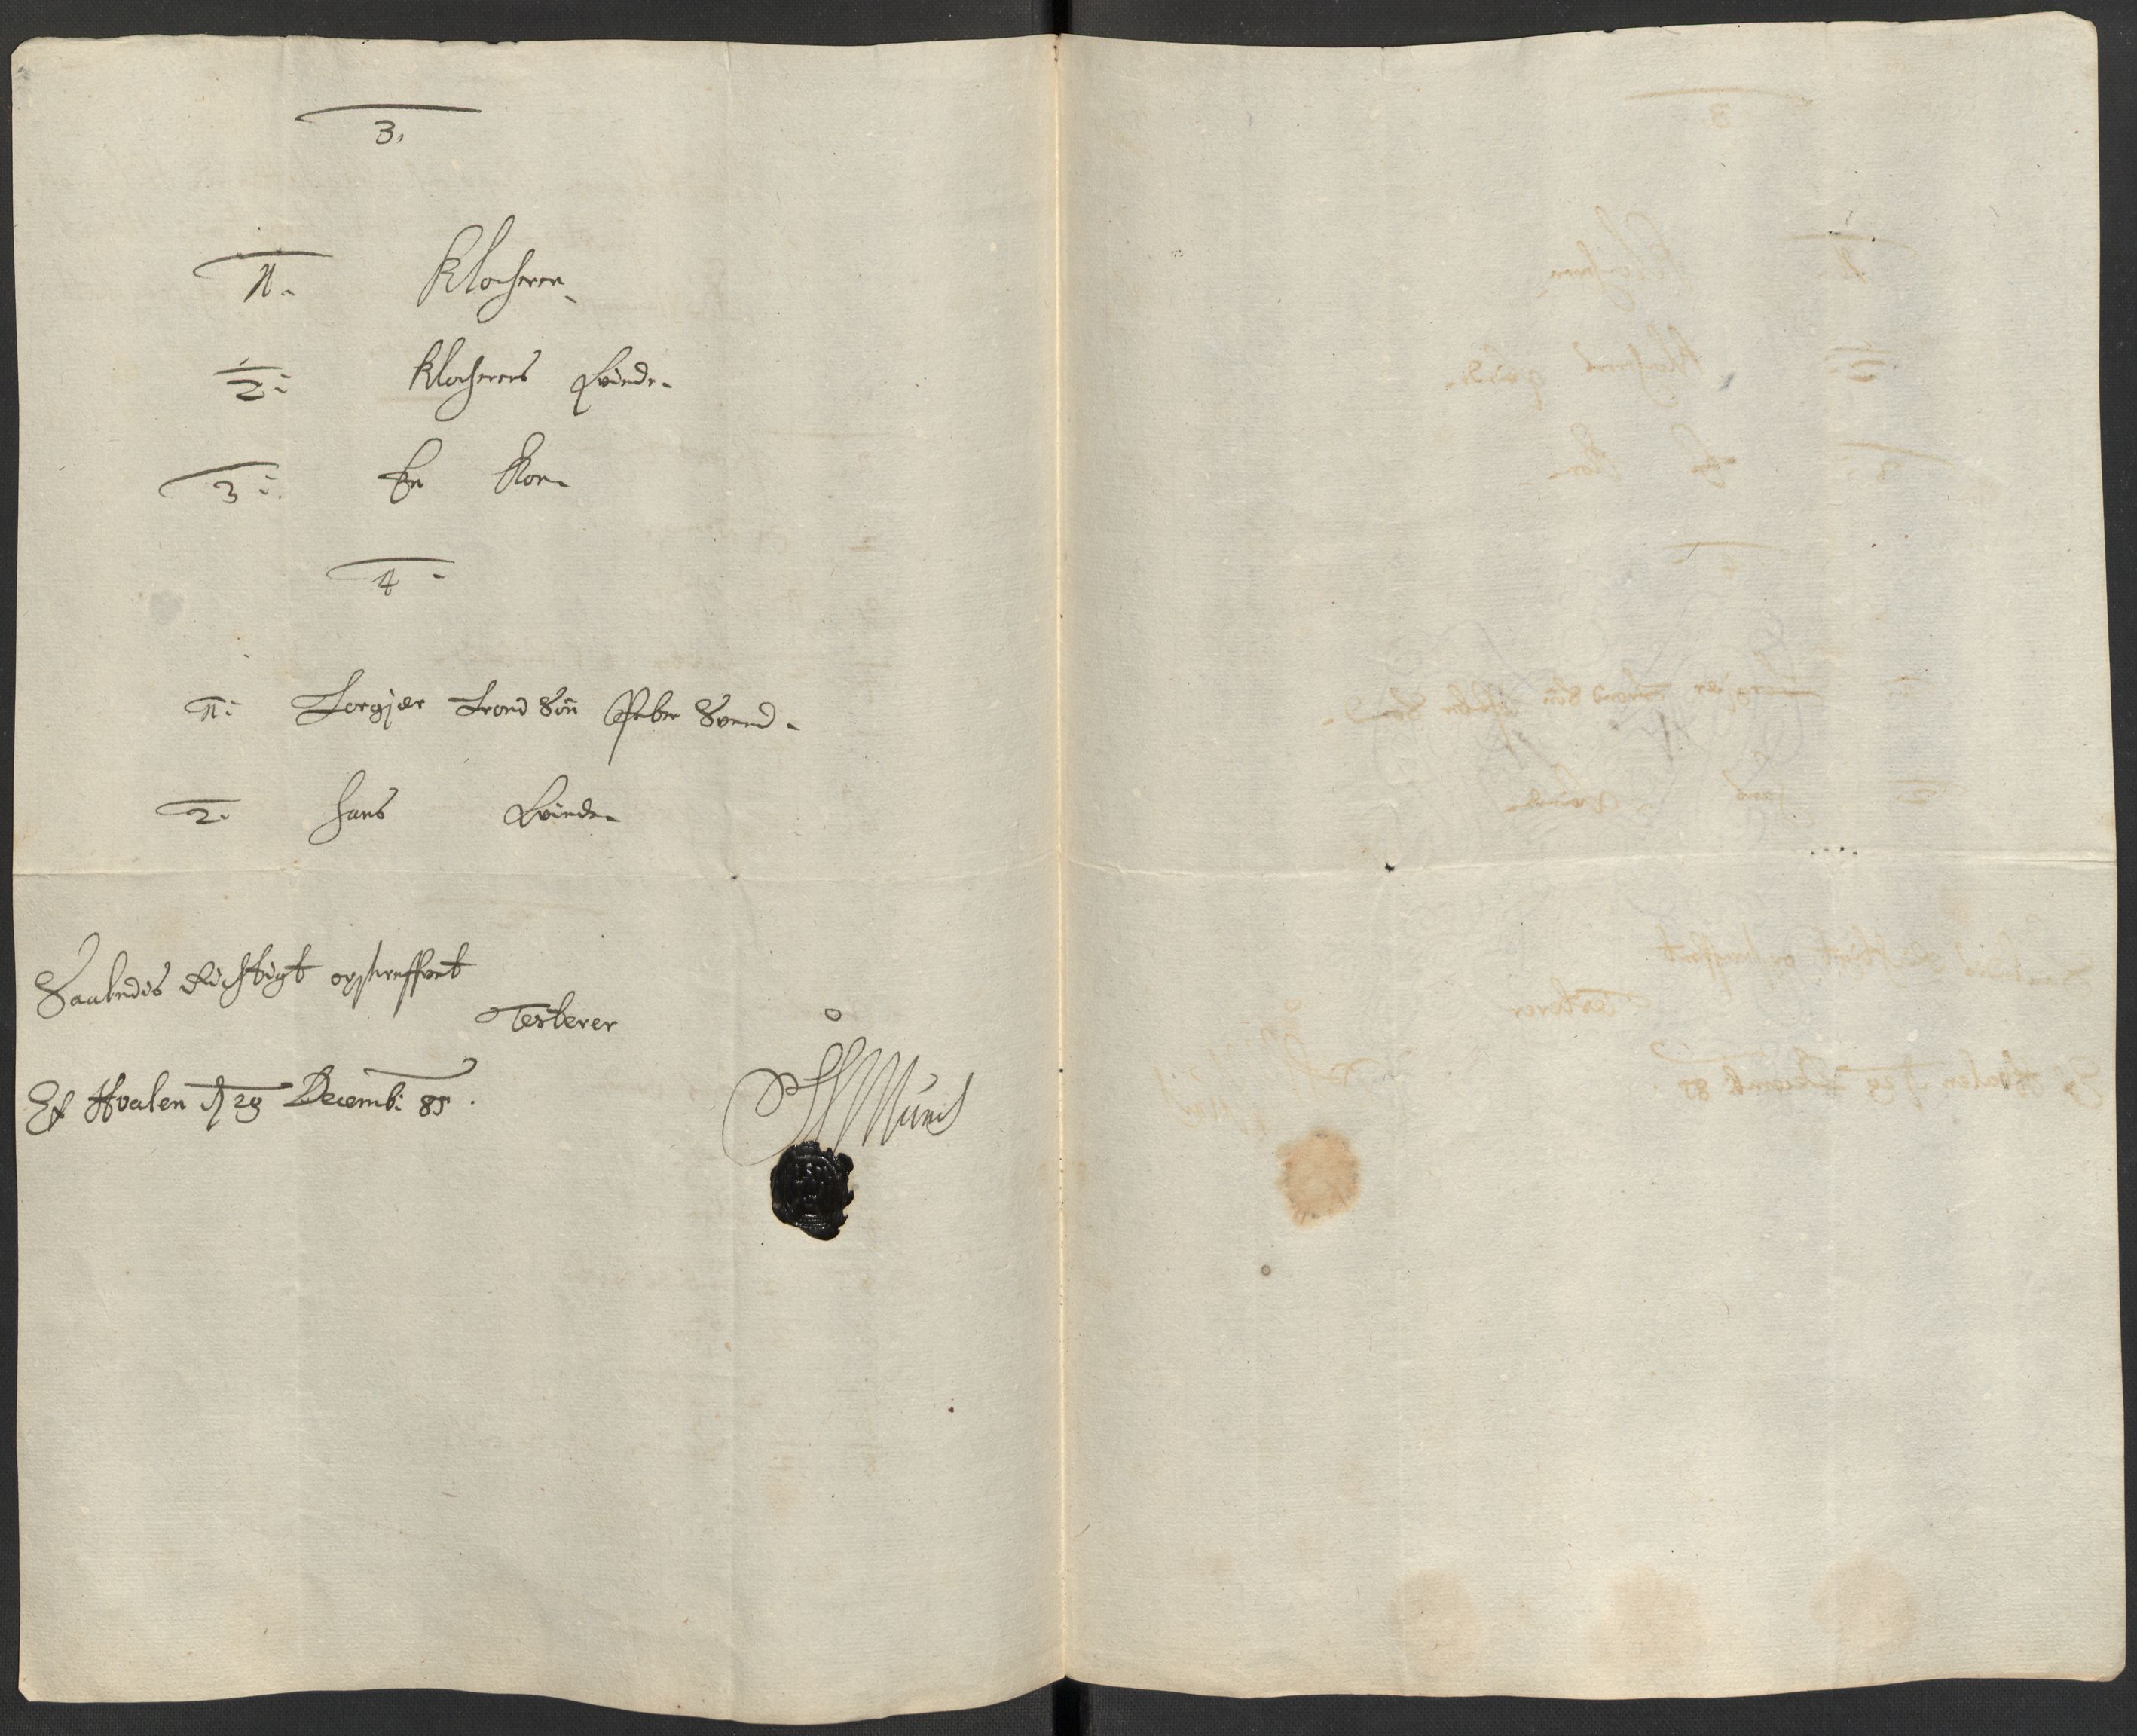 3.
1. Klocheren
2. Klocherens Qvinde
3. En Kone
4
1. Torgier Trond Søn Peber Svend
2. hans Qvinde
Saaledis Richtigt opskreffvet
Testerer
Hvalen d 29 Decemb: 85.
Munch